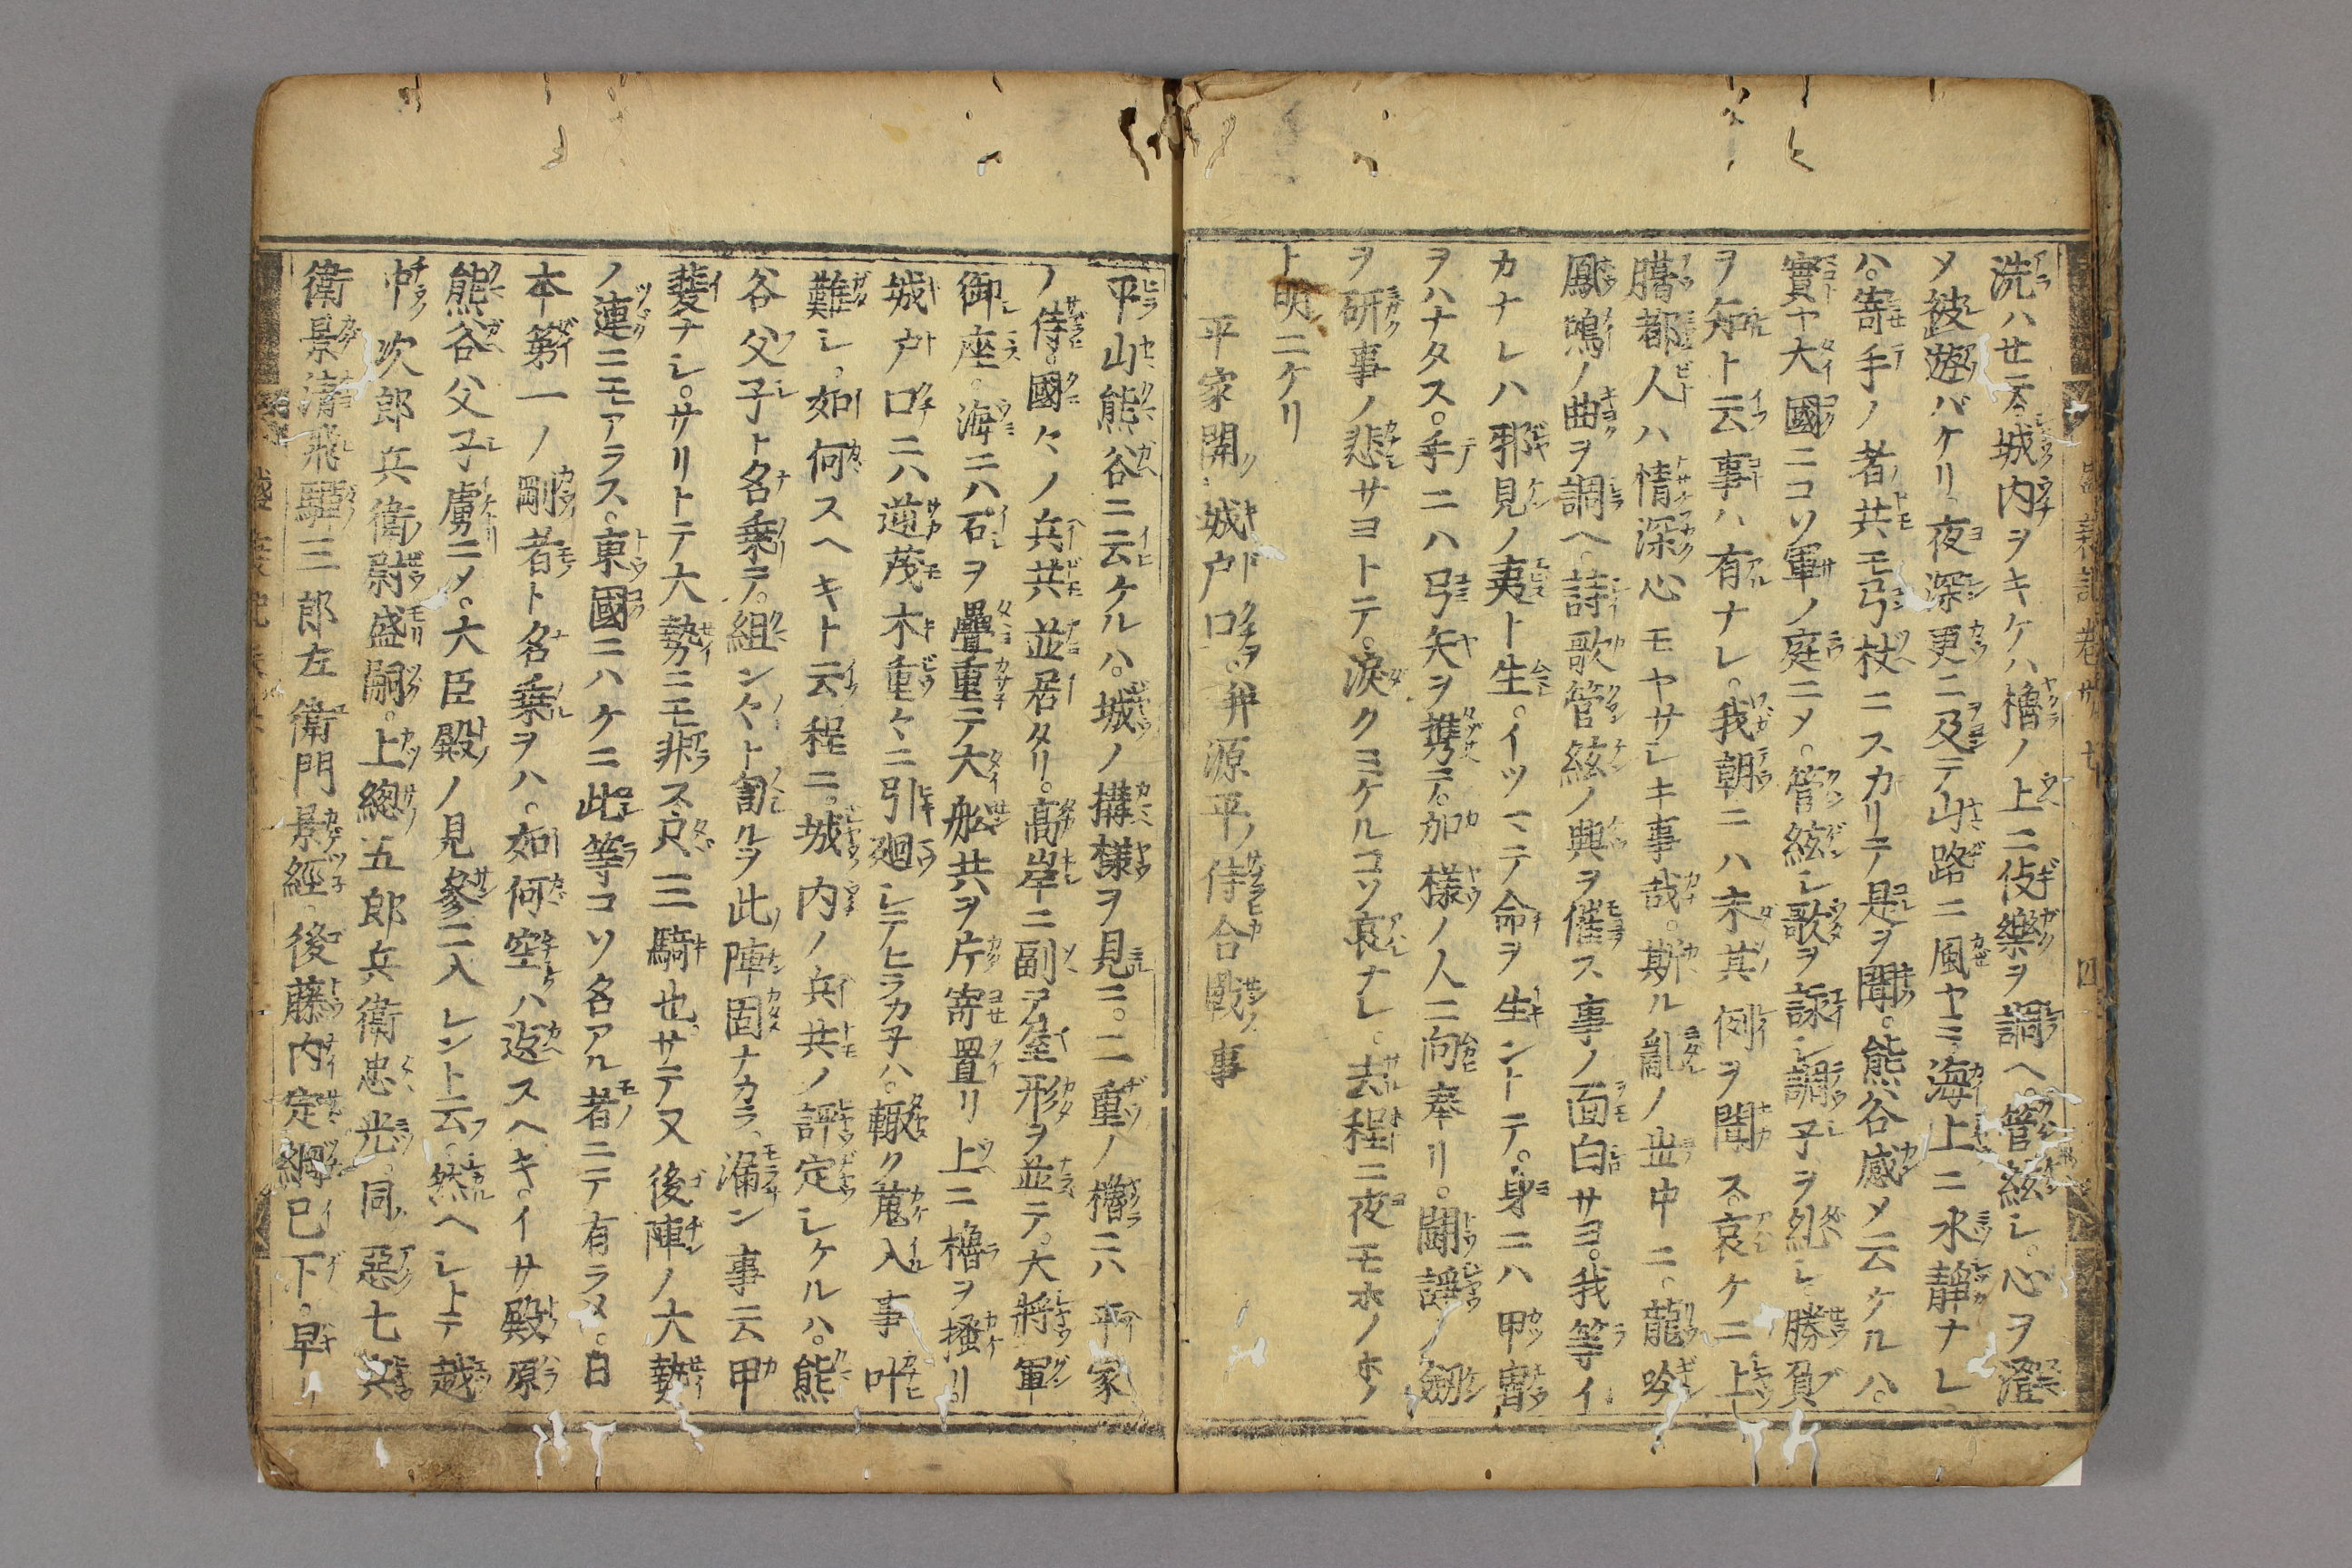 洗ハせ玉。城内ヲキケハ櫓ノ上ニ伎樂ヲ調ヘ。管絃シ。心ヲ澄
メ彼遊バケリ。夜深更ニ及テ山路ニ風ヤミ。海上ニ水靜ナレ。
ハ。寄手ノ者共モ弓杖ニスカリテ是ヲ聞。熊谷感メ云ケルハ。
實ヤ大國ニコソ軍ノ庭ニメ。管絃シ歌ヲ詠シ調子ヲ糺シ勝負
ヲ知ト云事ハ有ナレ。我朝ニハ未其例ヲ聞ス。哀ケニ上
臈都人ハ情深心モヤサシキ事哉。斯ル亂ノ世中ニ。龍吟
鳳鳴ノ曲ヲ調ヘ。詩歌管絃ノ興ヲ催ス事ノ面白サヨ。我等イ
カナレハ邪見ノ夷ト生。イツマテ命ヲ生ントテ。身ニハ甲冑
ヲハナタス。手ニハ弓矢ヲ携テ。加樣ノ人ニ向奉リ。鬪諍ノ劔
ヲ研事ノ悲サヨトテ。淚クヨケルコソ哀ナレ。去程ニ夜モホノホノ
ト明ニケリ
平家開城戸口。并源平侍合戰事
平山熊谷ニ云ケルハ。城ノ搆樣ヲ見ニ。二重ノ櫓ニハ平家
ノ侍。國々ノ兵共並居タリ。高岸ニ副テ屋形ヲ並テ。大將軍
御座。海ニハ石ヲ疊重テ大舩共ヲ片寄置リ上ニ櫓ヲ掻リ
城戸口ニハ逆茂木重々ニ引廻シテヒラカ子ハ。輙ク蒐入事叶
難シ。如何スヘキト云程ニ。城内ノ兵共ノ評定シケルハ。熊
谷父子ト名乗テ。組ン々々ト訇ルヲ此陣固ナカラ。漏ン事云甲
斐ナシ。サリトテ大勢ニモ非ス。只三騎也。サテ又後陣ノ大勢
ノ連ニモアラス。東國ニハケニ此等コソ名アル者ニテ有ラメ。日
本第一ノ剛者ト名乗ヲハ。如何空ハ返スヘキ。イサ殿原
熊谷父子虜ニメ。大臣殿ノ見參ニ入レント云。然ヘシトテ越
中次郎兵衛尉盛嗣。上總五郎兵衛忠光。同惡七兵
衛景淸飛驒三郎左衛門景經。後藤内定綱已下。早リ